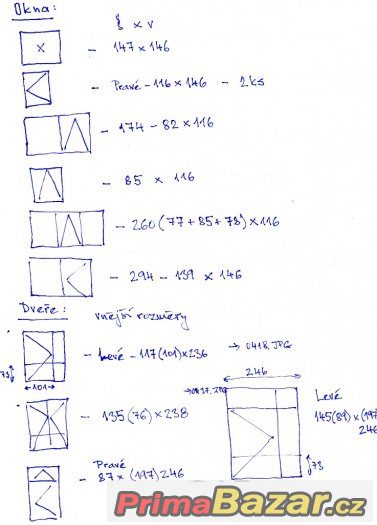 Okna:
š x v
x
- 147 x 146
- Pravé - 116 x 146 - 2ks
- 174 - 82 x 116
- 85 x 116
- 260 (77 + 85 + 78) x 116
- 294 - 139 x 146
Dveře:
vnější rozměry
- Levé - 117 (101) x 236
73
101
→ 0418.JPG
246
→ 0417.JPG
Levé
145 (89) x (197)
246
73
- 135 (76) x 238
Pravé
- 87 x (197) 246
PrimaBazar.cz